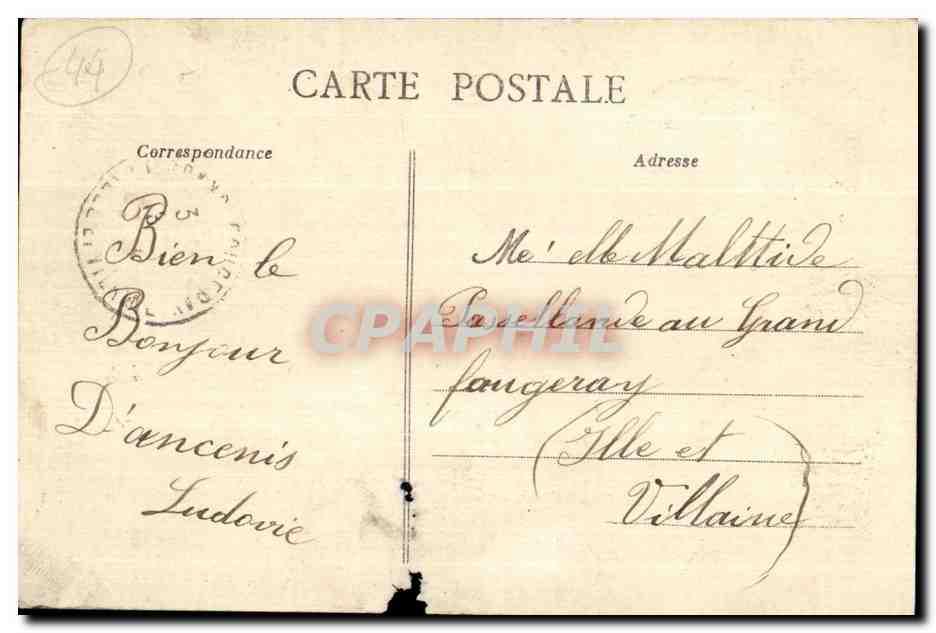 44
CARTE POSTALE
Correspondance
Bien le
Bonjour
D'ancenis
Ludovie
Adresse
Melle Malttide
Passellande au Grand
fougeray
(Ille et
Villaine)
CPAPHIL